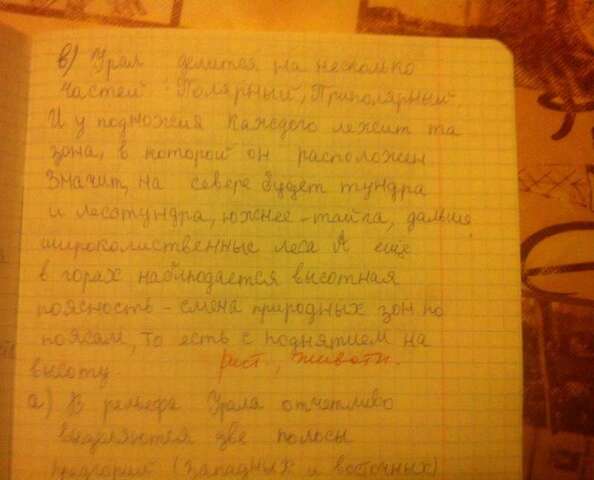 в) Урал делится на несколько
частей Полярный, Приполярный.
И у подножия каждого лежит та
зона, в которой он расположен
Значит, на севере будет тундра
и лесотундра, южнее - тайга, дальше
широколиственные леса А еще
в горах наблюдается высотная
поясность - смена природных зон по
поясам, то есть с поднятием на
высоту. раст., животн.
а) В рельефе Урала отчетливо
выделяются две полосы
предгорий (западных и восточных)